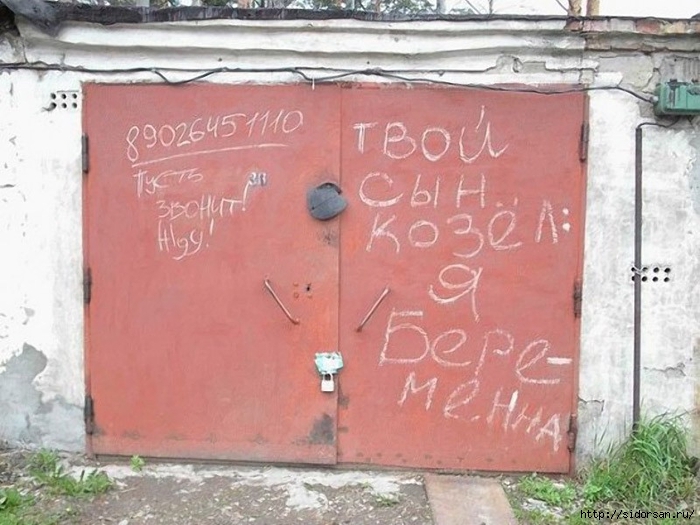 89026451110
Пусть
звонит!
Жду!
28
ТВОЙ
СЫН..
КОЗЁЛ:
Я
Бере-
менна
http://sidorsan.ru/